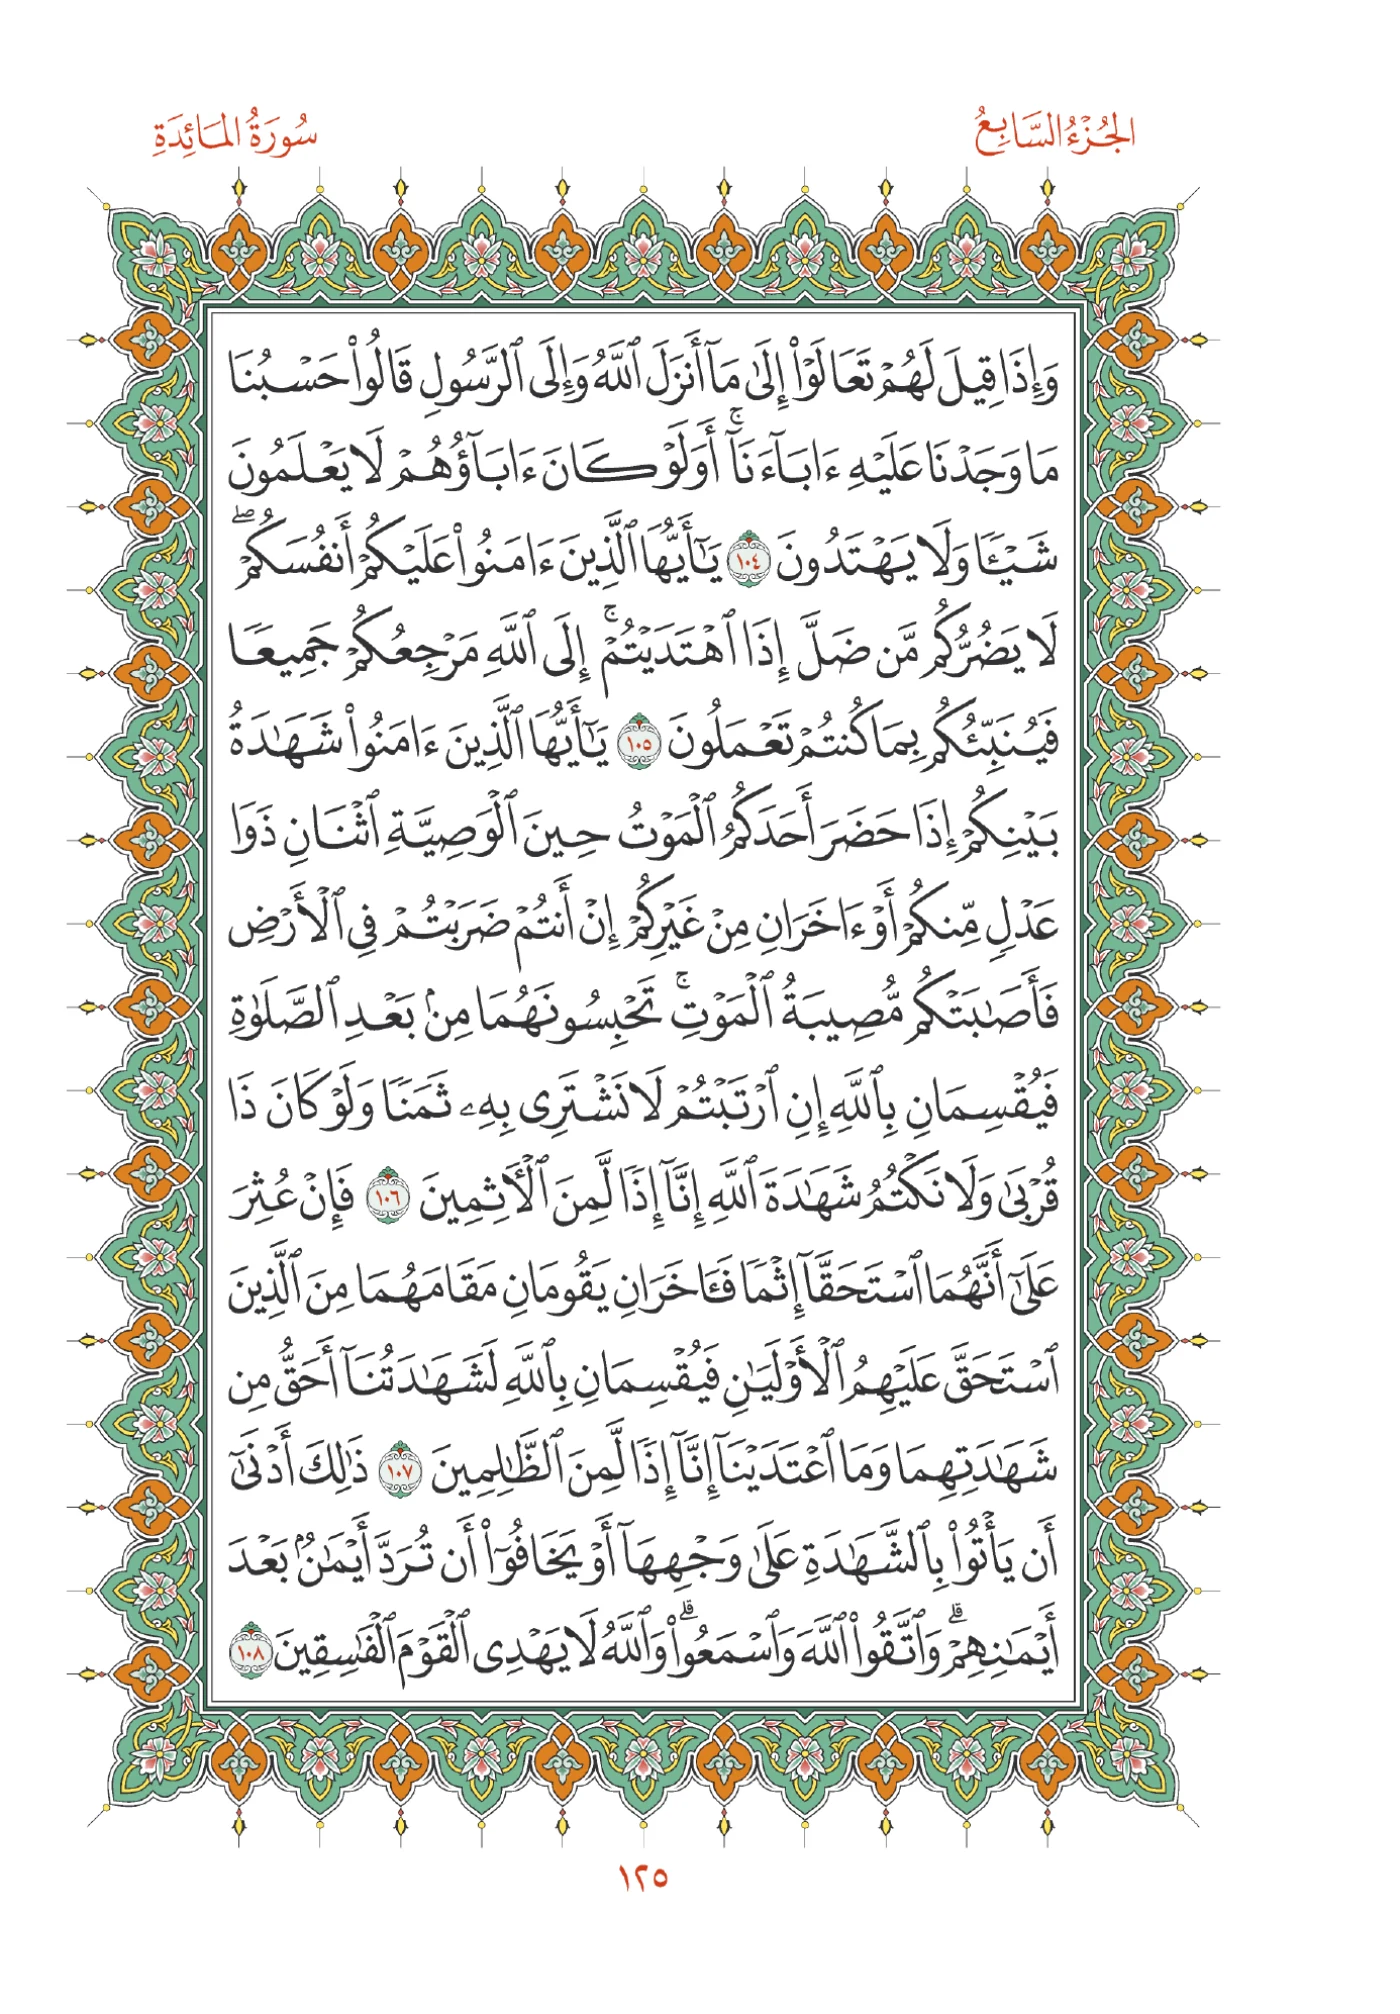 الجُزْءُ السَّابِعُ
سُورَةُ المَائِدَةِ
وَإِذَا قِيلَ لَهُمْ تَعَالَوْا۟ إِلَىٰ مَآ أَنزَلَ ٱللَّهُ وَإِلَى ٱلرَّسُولِ قَالُوا۟ حَسْبُنَا
مَا وَجَدْنَا عَلَيْهِ ءَابَآءَنَآ ۚ أَوَلَوْ كَانَ ءَابَآؤُهُمْ لَا يَعْلَمُونَ
شَيْـًٔا وَلَا يَهْتَدُونَ ١٠٤ يَـٰٓأَيُّهَا ٱلَّذِينَ ءَامَنُوا۟ عَلَيْكُمْ أَنفُسَكُمْ ۖ
لَا يَضُرُّكُم مَّن ضَلَّ إِذَا ٱهْتَدَيْتُمْ ۚ إِلَى ٱللَّهِ مَرْجِعُكُمْ جَمِيعًا
فَيُنَبِّئُكُم بِمَا كُنتُمْ تَعْمَلُونَ ١٠٥ يَـٰٓأَيُّهَا ٱلَّذِينَ ءَامَنُوا۟ شَهَـٰدَةُ
بَيْنِكُمْ إِذَا حَضَرَ أَحَدَكُمُ ٱلْمَوْتُ حِينَ ٱلْوَصِيَّةِ ٱثْنَانِ ذَوَا
عَدْلٍ مِّنكُمْ أَوْ ءَاخَرَانِ مِنْ غَيْرِكُمْ إِنْ أَنتُمْ ضَرَبْتُمْ فِى ٱلْأَرْضِ
فَأَصَـٰبَتْكُم مُّصِيبَةُ ٱلْمَوْتِ ۚ تَحْبِسُونَهُمَا مِنۢ بَعْدِ ٱلصَّلَوٰةِ
فَيُقْسِمَانِ بِٱللَّهِ إِنِ ٱرْتَبْتُمْ لَا نَشْتَرِى بِهِۦ ثَمَنًا وَلَوْ كَانَ ذَا
قُرْبَىٰ وَلَا نَكْتُمُ شَهَـٰدَةَ ٱللَّهِ إِنَّآ إِذًا لَّمِنَ ٱلْـَٔاثِمِينَ ١٠٦ فَإِنْ عُثِرَ
عَلَىٰٓ أَنَّهُمَا ٱسْتَحَقَّآ إِثْمًا فَـَٔاخَرَانِ يَقُومَانِ مَقَامَهُمَا مِنَ ٱلَّذِينَ
ٱسْتَحَقَّ عَلَيْهِمُ ٱلْأَوْلَيَـٰنِ فَيُقْسِمَانِ بِٱللَّهِ لَشَهَـٰدَتُنَآ أَحَقُّ مِن
شَهَـٰدَتِهِمَا وَمَا ٱعْتَدَيْنَآ إِنَّآ إِذًا لَّمِنَ ٱلظَّـٰلِمِينَ ١٠٧ ذَٰلِكَ أَدْنَىٰٓ
أَن يَأْتُوا۟ بِٱلشَّهَـٰدَةِ عَلَىٰ وَجْهِهَآ أَوْ يَخَافُوٓا۟ أَن تُرَدَّ أَيْمَـٰنٌۢ بَعْدَ
أَيْمَـٰنِهِمْ ۗ وَٱتَّقُوا۟ ٱللَّهَ وَٱسْمَعُوا۟ ۗ وَٱللَّهُ لَا يَهْدِى ٱلْقَوْمَ ٱلْفَـٰسِقِينَ ١٠٨
١٢٥